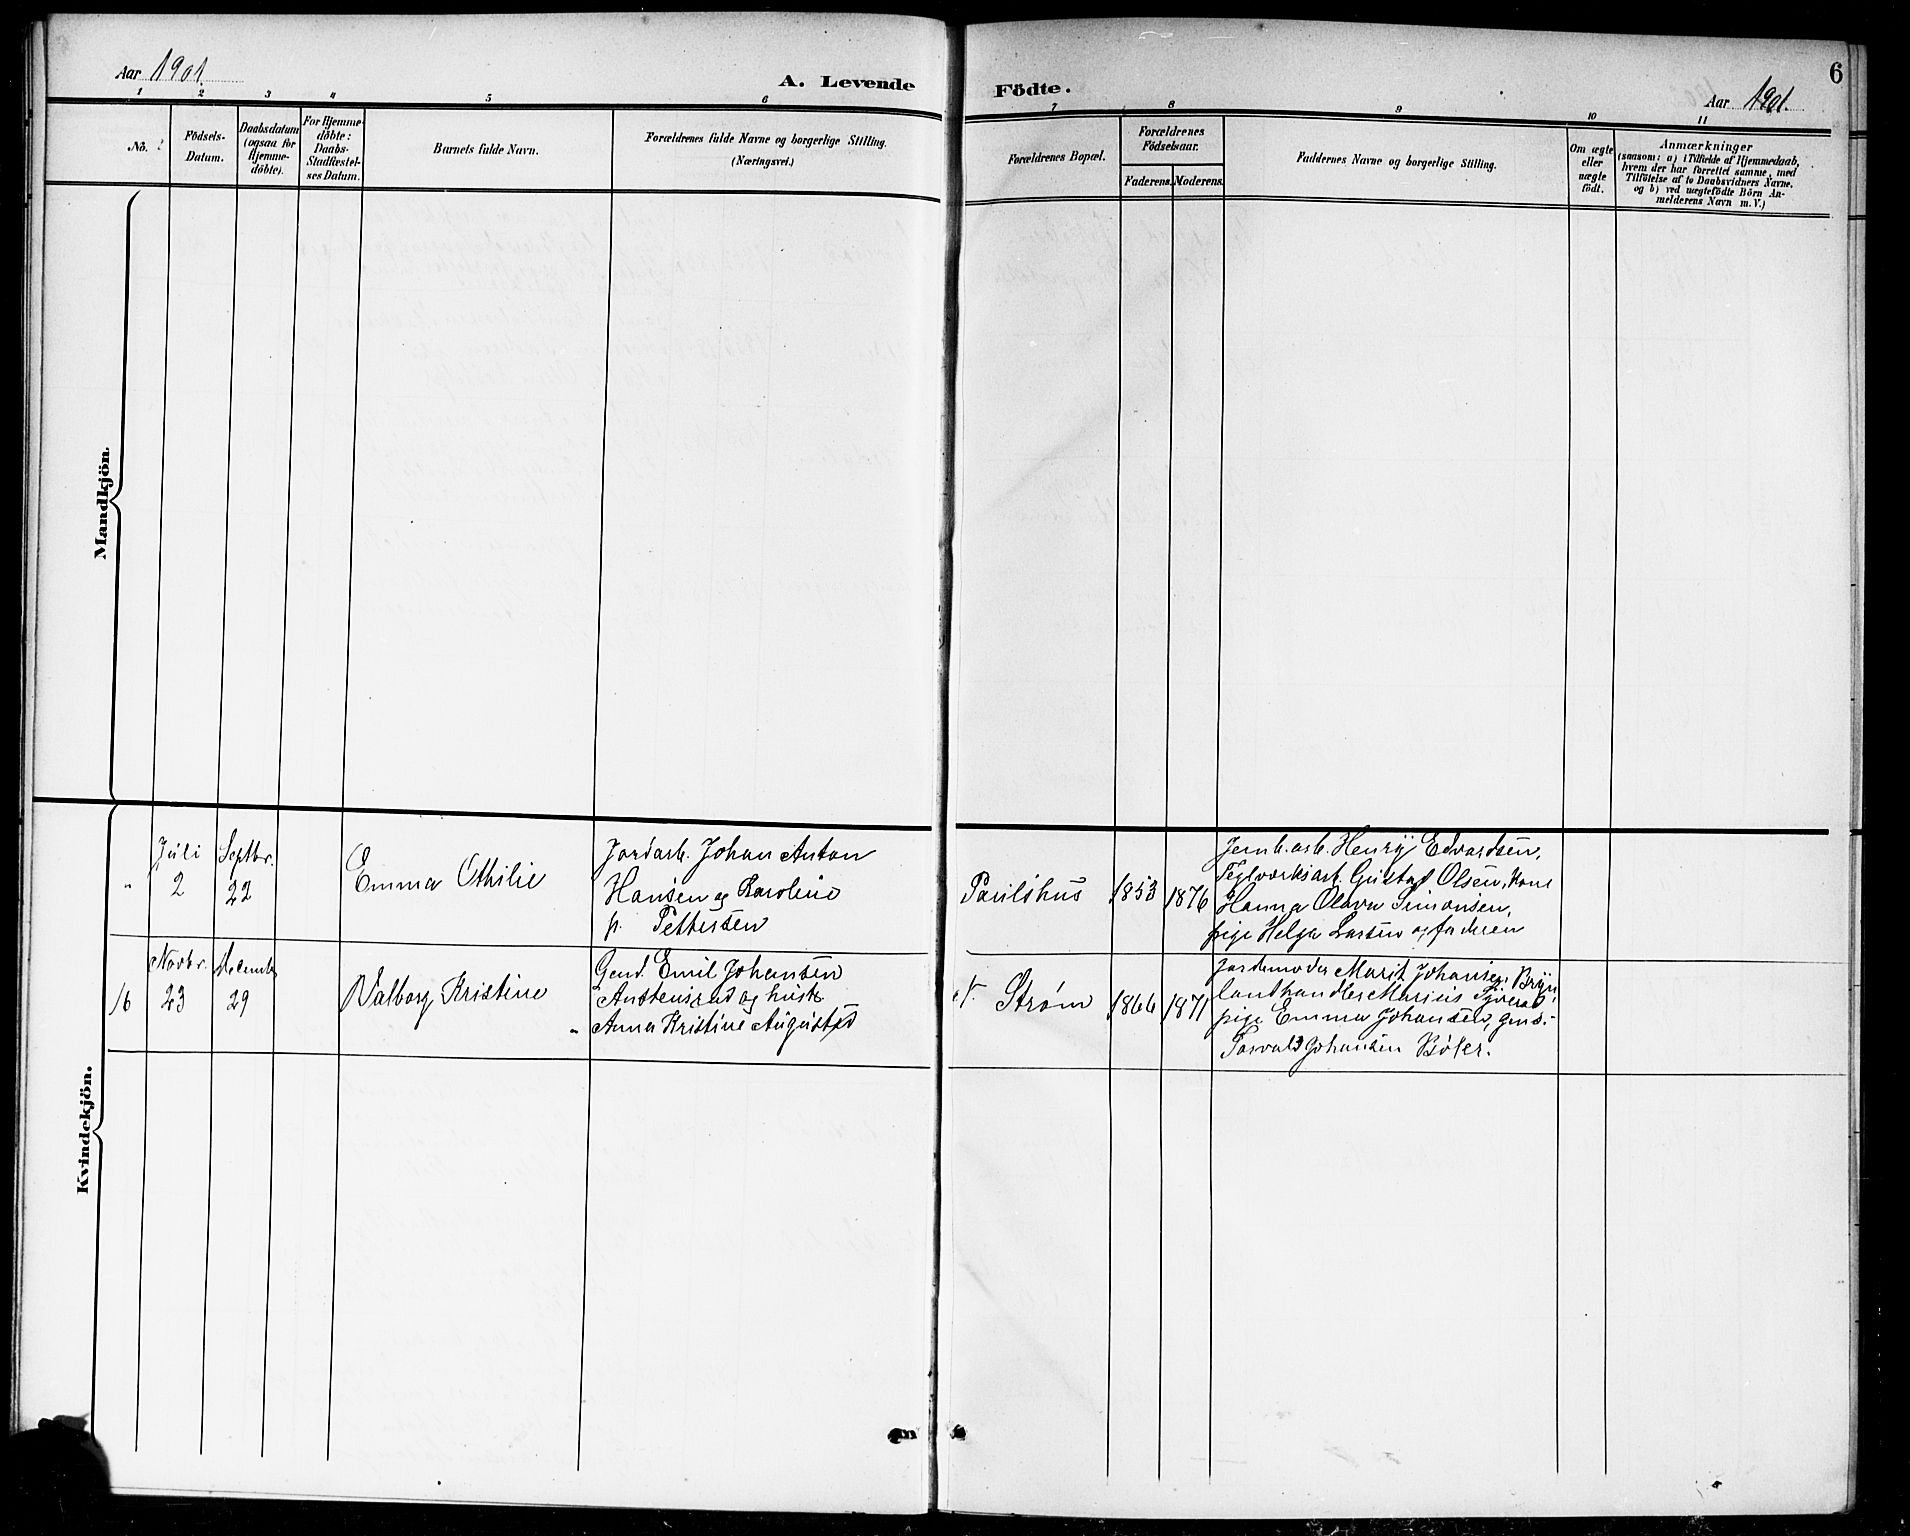 Aar 1901.
A. Levende
1 2 3 4 5 6
No.
Födsels-Datum.
Daabsdatum (ogsaa for Hjemme-döbte).
For Hjemme-döbte: Daabs-Stadfæstel-ses Datum.
Barnets fulde Navn.
Forældrenes fulde Navne og borgerlige Stilling.
(Næringsvei.)
Mandkjön.
Juli Septbr.
„ 2 22
Emma Othilie
Jordarb. Johan Anton
Hansen og Karoline
f. Pettersen
Novbr. December
16 23 29
Valborg Kristine
Gmd. Emil Johansen
Anstensrud og hust.
Anna Kristine Augustsd
Kvindekjön.
Födte.
6
Aar 1901.
7 8 9 10 11
Forældrenes Bopæl.
Forældrenes Födselsaar.
Faderens.
Moderens.
Faddernes Navne og borgerlige Stilling.
Om ægte eller uægte födt.
Anmærkninger
(saasom: a) i Tilfælde af Hjemmedaab,
hvem der har forrettet samme, med
Tilföielse af to Daabsvidners Navne,
og b) ved uægtefödte Börn An-
melderens Navn m. V.)
Paulshus 1853 1876
Jernb.arb. Henry Edvardsen,
Teglværksarb. Gustav Olsen, Kone
Hanna Olava Simonsen,
pige Helga Larsen og faderen
N. Strøm 1866 1871
Jordemoder Marit Johansen,
landhandler Marius
pige Emma Johansen, gmd.-
Torvald Johansen Bøler.